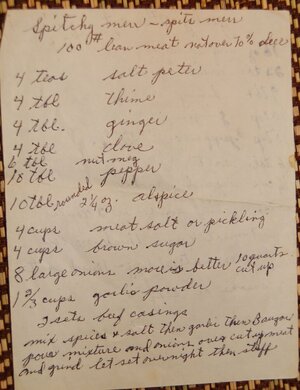 Spitchy men - spits men
100 # lean meat not over 70% deer
4 teas salt peter
4 tbl thime
4 tbl. ginger
4 tbl clove
6 tbl nutmeg
10 tbl pepper
10 tbl rounded 2 1/4 oz. alspice
4 cups meat salt or pickling
4 cups brown sugar
8 large onions more is better 10 quarts cut up
1 2/3 cups garlic powder
2 sets beef casings
mix spices & salt then garlic then B sugar
pour mixture and onions over cut up meat
and grind let set overnight then stuff